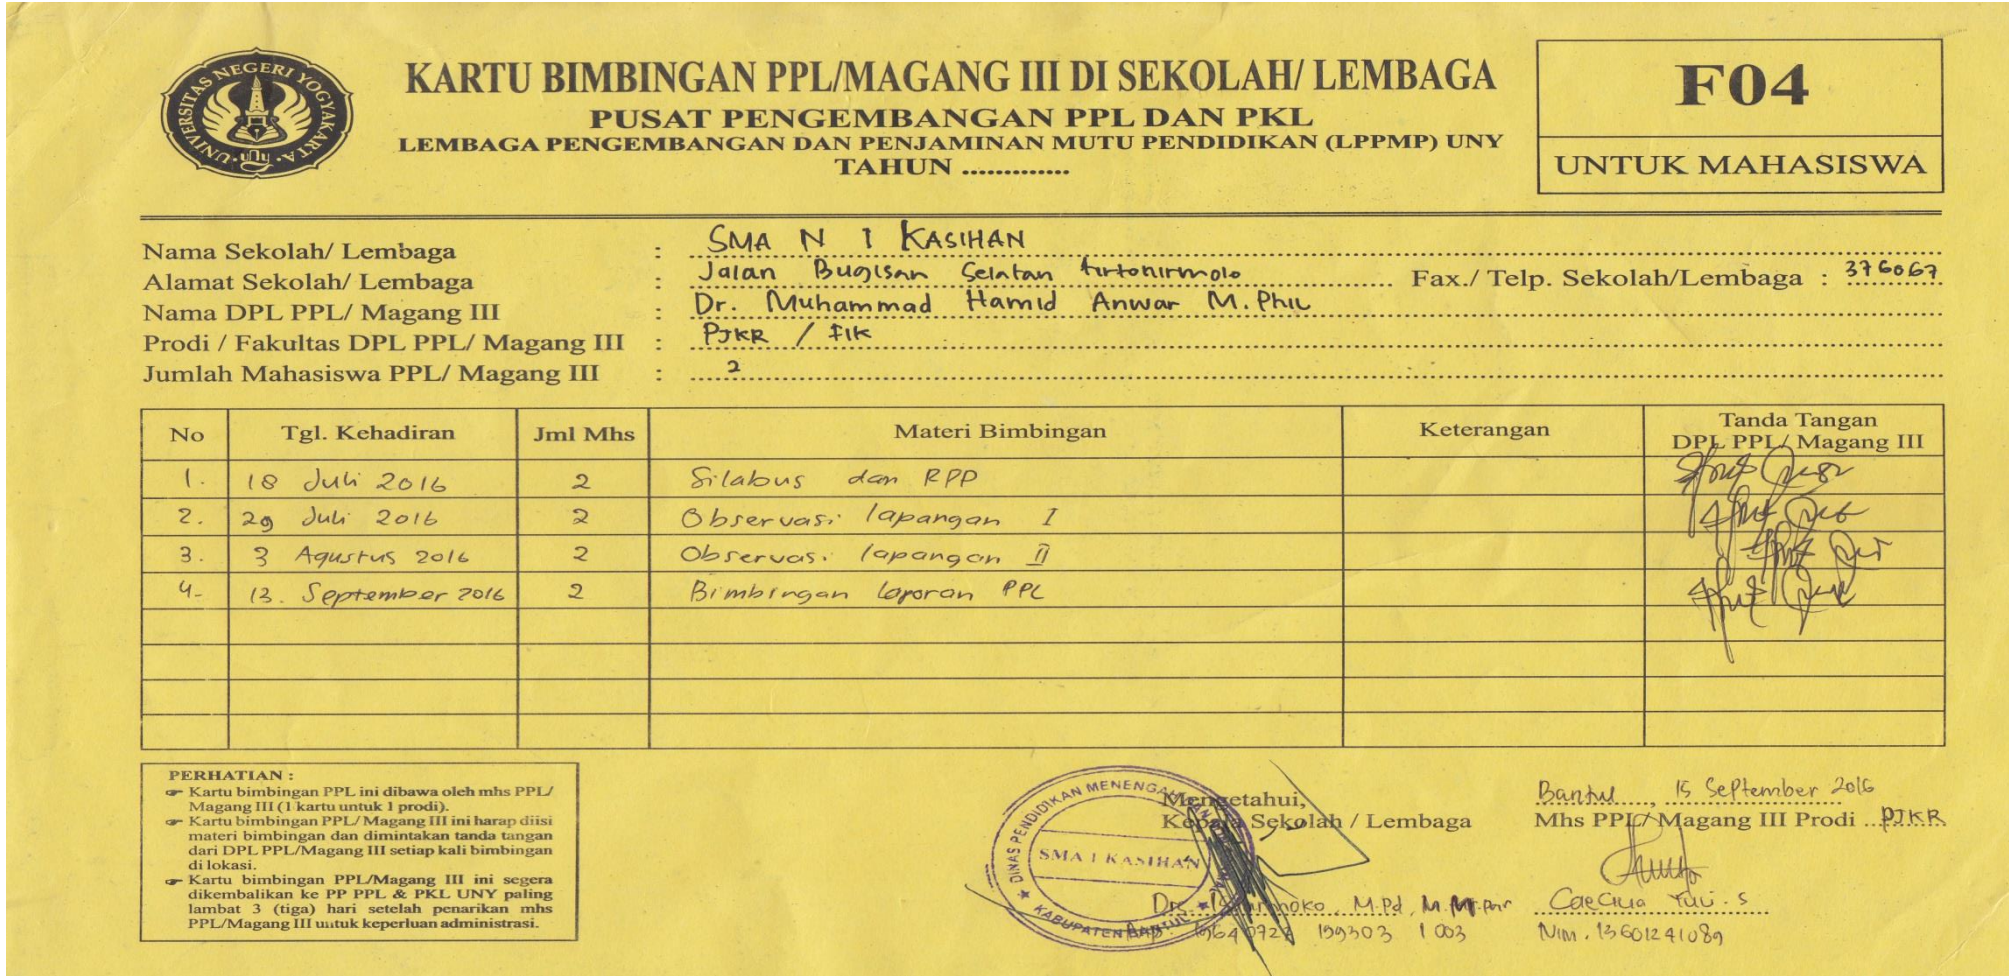 UNIVERSITAS NEGERI YOGYAKARTA
UNY
KARTU BIMBINGAN PPL/MAGANG III DI SEKOLAH/ LEMBAGA
PUSAT PENGEMBANGAN PPL DAN PKL
LEMBAGA PENGEMBANGAN DAN PENJAMINAN MUTU PENDIDIKAN (LPPMP) UNY
TAHUN .............
F04
UNTUK MAHASISWA
Nama Sekolah/ Lembaga : SMA N 1 KASIHAN
Alamat Sekolah/ Lembaga : Jalan Bugisan Selatan tirtonirmolo Fax./ Telp. Sekolah/Lembaga : 376067
Nama DPL PPL/ Magang III : Dr. Muhammad Hamid Anwar M. Phil
Prodi / Fakultas DPL PPL/ Magang III : PJKR / FIK
Jumlah Mahasiswa PPL/ Magang III : 2
No Tgl. Kehadiran Jml Mhs Materi Bimbingan Keterangan Tanda Tangan DPL PPL/ Magang III
1. 18 Juli 2016 2 Silabus dan RPP
2. 29 Juli 2016 2 Observasi lapangan I
3. 3 Agustus 2016 2 Observasi lapangan II
4. 13. September 2016 2 Bimbingan laporan PPL
PERHATIAN :
Kartu bimbingan PPL ini dibawa oleh mhs PPL/
Magang III (1 kartu untuk 1 prodi).
Kartu bimbingan PPL/ Magang III ini harap diisi
materi bimbingan dan dimintakan tanda tangan
dari DPL PPL/Magang III setiap kali bimbingan
di lokasi.
Kartu bimbingan PPL/Magang III ini segera
dikembalikan ke PP PPL & PKL UNY paling
lambat 3 (tiga) hari setelah penarikan mhs
PPL/Magang III untuk keperluan administrasi.
Mengetahui,
Kepala Sekolah / Lembaga
DINAS PENDIDIKAN MENENGAH
SMA 1 KASIHAN
KABUPATEN BANTUL
M.Pd
199303 1 003
Bantul, 15 September 2016
Mhs PPL/ Magang III Prodi PJKR
Caecilia Yuli . S
Nim . 13601241089